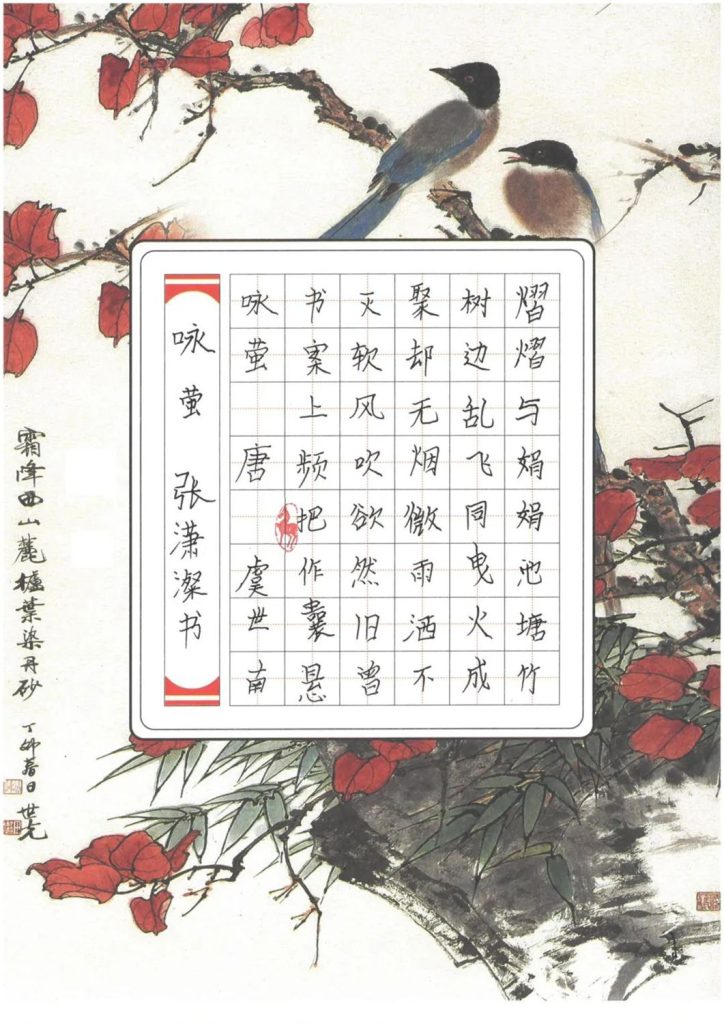 熠熠与娟娟池塘竹
树边乱飞同曳火成
聚却无烟微雨洒不
灭软风吹欲然旧曾
书案上频把作囊悬
咏萤 唐 虞世南
咏萤 张潇澯书
霜降西山麓櫨葉染丹砂 丁卯春日 世光